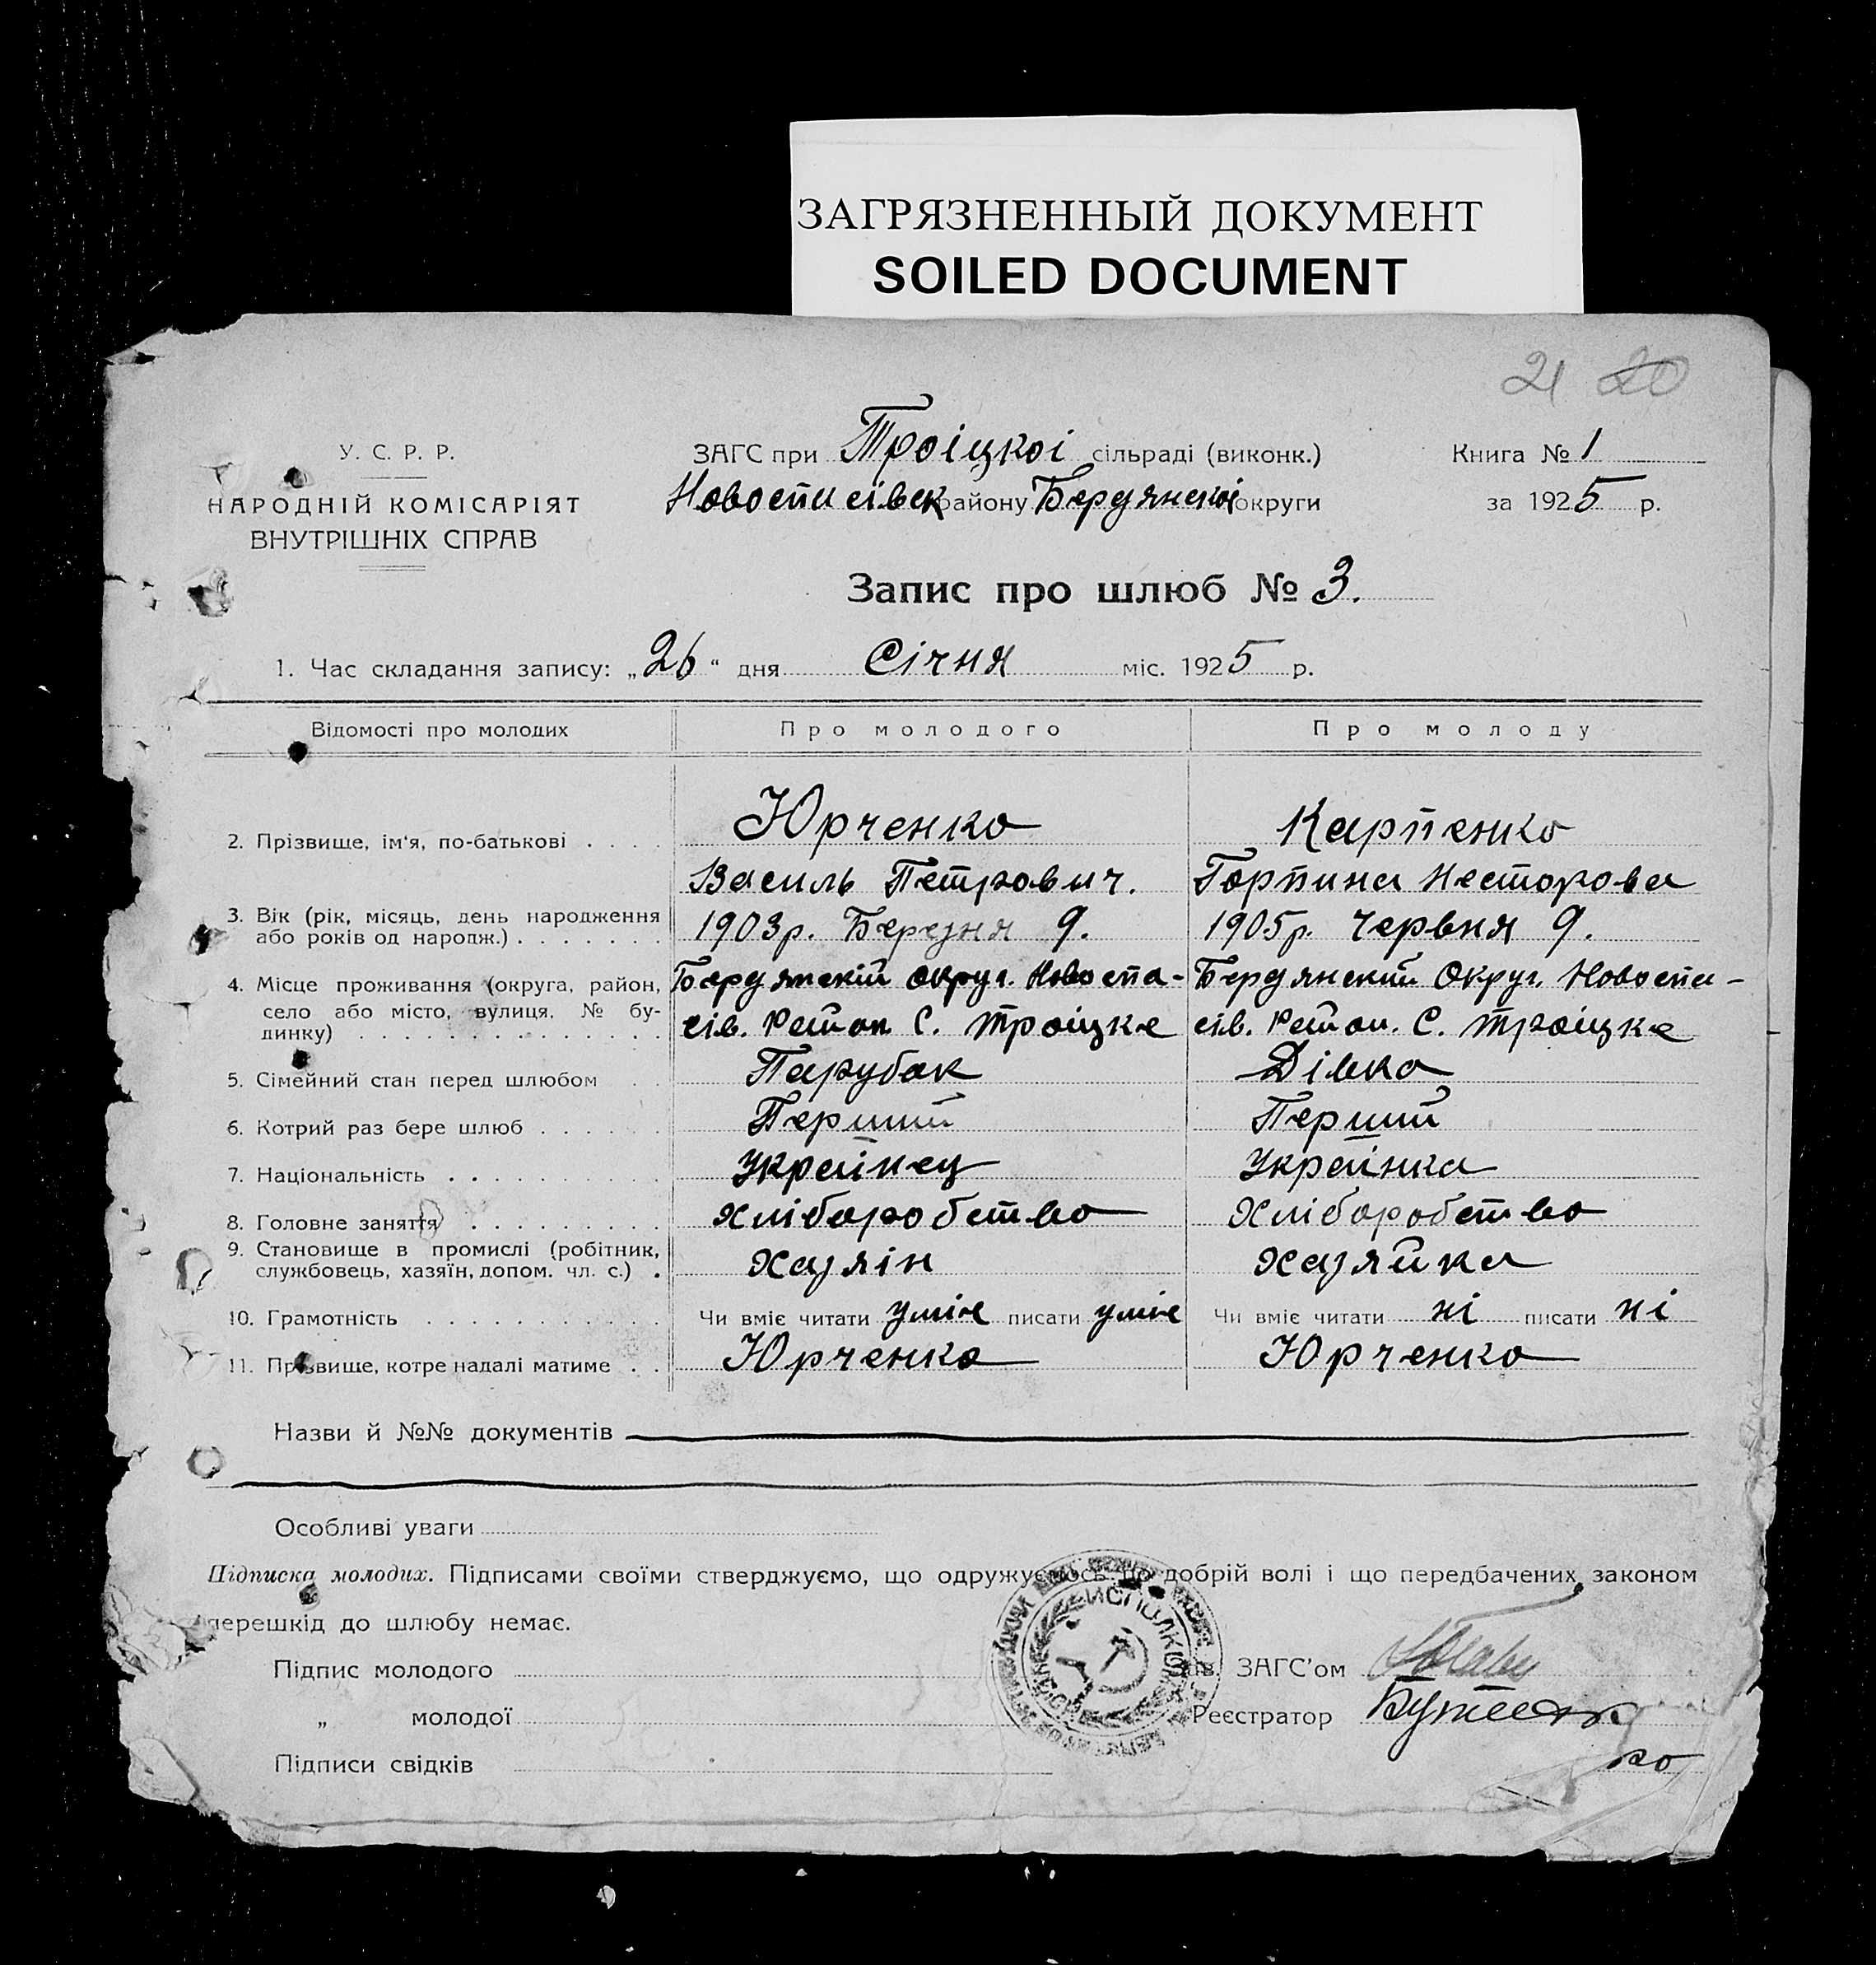 ЗАГРЯЗНЕННЫЙ ДОКУМЕНТ
SOILED DOCUMENT
21 20
У. С. Р. Р.
НАРОДНІЙ КОМІСАРІЯТ
ВНУТРІШНІХ СПРАВ
ЗАГС при Троіцкоі сільраді (виконк.)
Новоспасівск району Бердянскоі округи
Книга № 1
за 1925 р.
Запис про шлюб № 3.
1. Час складання запису: „26“ дня Січня міс. 1925 р.
Відомості про молодих Про молодого Про молоду
2. Прізвище, ім'я, по-батькові . . . . Юрченко Карпенко
Василь Петрович. Горпина Несторова
3. Вік (рік, місяць, день народження
або років од народж.) . . . . . . . 1903р. Березня 9. 1905р. Червня 9.
4. Місце проживання (округа, район, Бердянскій округ. Новоспа- Бердянский Округ. Новоспа-
село або місто, вулиця, № бу- сів. Район С. Троіцке сів. Район. С. Троіцке
динку) . . . . . . . . . . . . . .
5. Сімейний стан перед шлюбом . Парубок Дівка
6. Котрий раз бере шлюб . . . . . . Перший Перший
7. Національність . . . . . . . . . . Украінец Украінка
8. Головне заняття . . . . . . . . . Хліборобство Хліборобство
9. Становище в промислі (робітник,
службовець, хазяїн, допом. чл. с.) . Хазяін Хазяйка
10. Грамотність . . . . . . . . . . . Чи вміє читати уміє писати уміє Чи вміє читати ні писати ні
11. Прізвище, котре надалі матиме . . Юрченко Юрченко
Назви й №№ документів
Особливі уваги
Підписка молодих. Підписами своїми стверджуємо, що одружуємось по добрій волі і що передбачених законом
перешкід до шлюбу немає.
ИСПОЛКОМ
Підпис молодого
Зав. ЗАГС'ом
„ молодої
Реєстратор
Підписи свідків